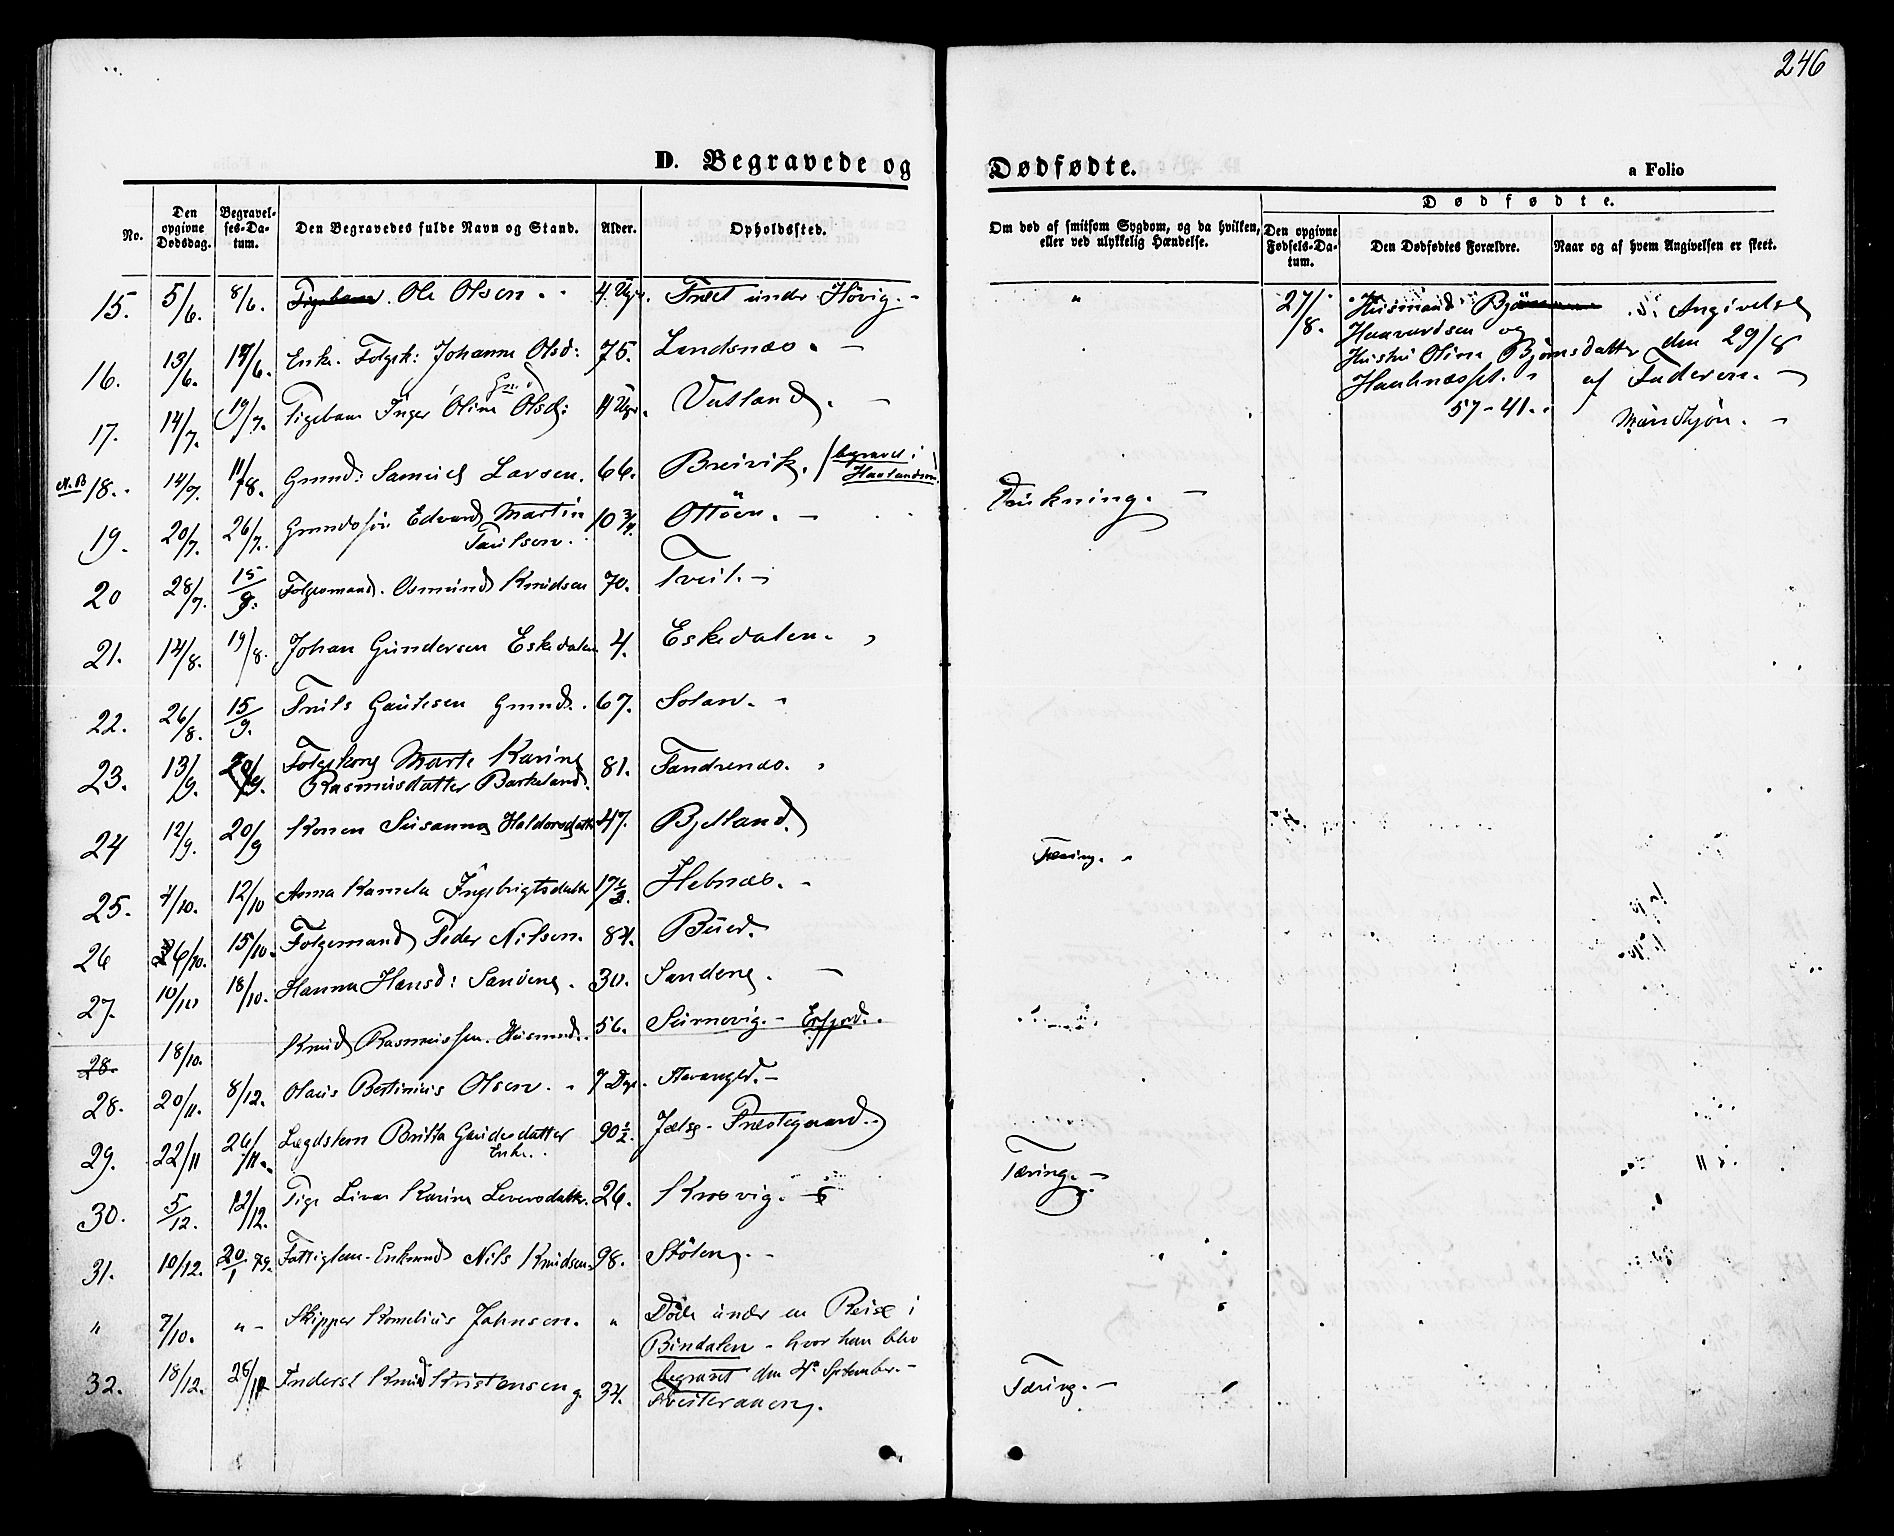 246
D. Begravede og Dødfødte.
a Folio
No.
Den opgivne Dødsdag.
Begravelses-Datum.
Den Begravedes fulde Navn og Stand.
Alder.
Opholdssted.
Om død af smitsom Sygdom, og da hvilken, eller ved ulykkelig Hændelse.
Dødfødte.
Den opgivne Fødsels-Datum.
Den Dødfødtes Forældre.
Naar og af hvem Angivelsen er skeet.
15. 5/6. 8/6. Ole Olsen. 4 Ugr. under Høvig.
27/8. Husmand
Haavardsen og
Hustru Olina Bjørnsdatter
57-41.
Angivelse
den 29/8
af Faderen.
Mandkjøn.
16. 13/6. 19/6. Enke. Folgek: Johanna Olsd: 75. Landsnæs.
17. 14/7. 19/7. Pigebarn Inger Olina Olsd: 4 Ugr. Vatland.
N.B 18. 14/7. 11/8. Gmd: Samuel Larsen. 66. Breivik. (begravet i
19. 20/7. 26/7. Gmdssøn Edvard Martin
Paulsen. 10 3/4 Ottøen. Drukning.
20 28/7. 15/9. Folgemand. Osmund Knudsen 70. Tveit.
21. 14/8. 19/8. Johan Gundersen Eskedalen 4. Eskedalen.
22. 26/8. 15/9. Truls Gautesen Gmd. 67. Solan.
23. 13/9. 20/9. Folgekone Marte Karine
Rasmusdatter Barkeland. 81. Sandsnæs.
24 12/9. 20/9 Konen Susanna Haldorsdatt. 47. Bjelland. Tæring.
25. 4/10. 12/10 Anna Kamela Ingebrigtsdatter 17 Hebnæs.
26 6/10. 15/10. Folgemand Peder Nilsen. 84. Bued.
27. 10/10 18/10. Hanna Hansd: Sandeng. 30. Sandeng.
28. 18/10. Knud Rasmussen. Husmd. 56. Surnevig. Erfjord.
28. 20/11. 8/12. Olaus Bertinius Olsen. 7 Dge. Stavanger.
29. 22/11 26/11. Lægdslem Britta Gautesdatter
Enke. 90 1/2. Jelse Præstegaard.
30. 5/12. 12/12. Pige Karina 26. Krosvig. Tæring.
31. 10/12. 20/1 79. Fattiglem. Enkemd Nils Knudsen. 98. Stølen.
" 7/10. " Skipper Kornelius Johnsen. " Døde under en Reise i
Bindalen - hvor han blev
begravet den 4. September.
32. 18/12. 28/12 Inderst Knud Kristensen 34. Tæring.